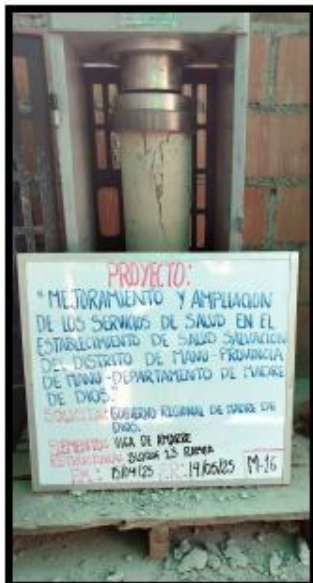 PROYECTO:
"MEJORAMIENTO Y AMPLIACION
DE LOS SERVICIOS DE SALUD EN EL
ESTABLECIMIENTO DE SALUD SALVACION
DEL DISTRITO DE MANU-PROVINCIA
DE MANU-DEPARTAMENTO DE MADRE
DE DIOS."
SOLICITA: GOBIERNO REGIONAL DE MADRE DE
DIOS.
ELEMENTO: VIGA DE AMARRE
ESTRUCTURA: BLOQUE 13 RAMPA
15/04/25 F.R.: 19/05/25 M-16